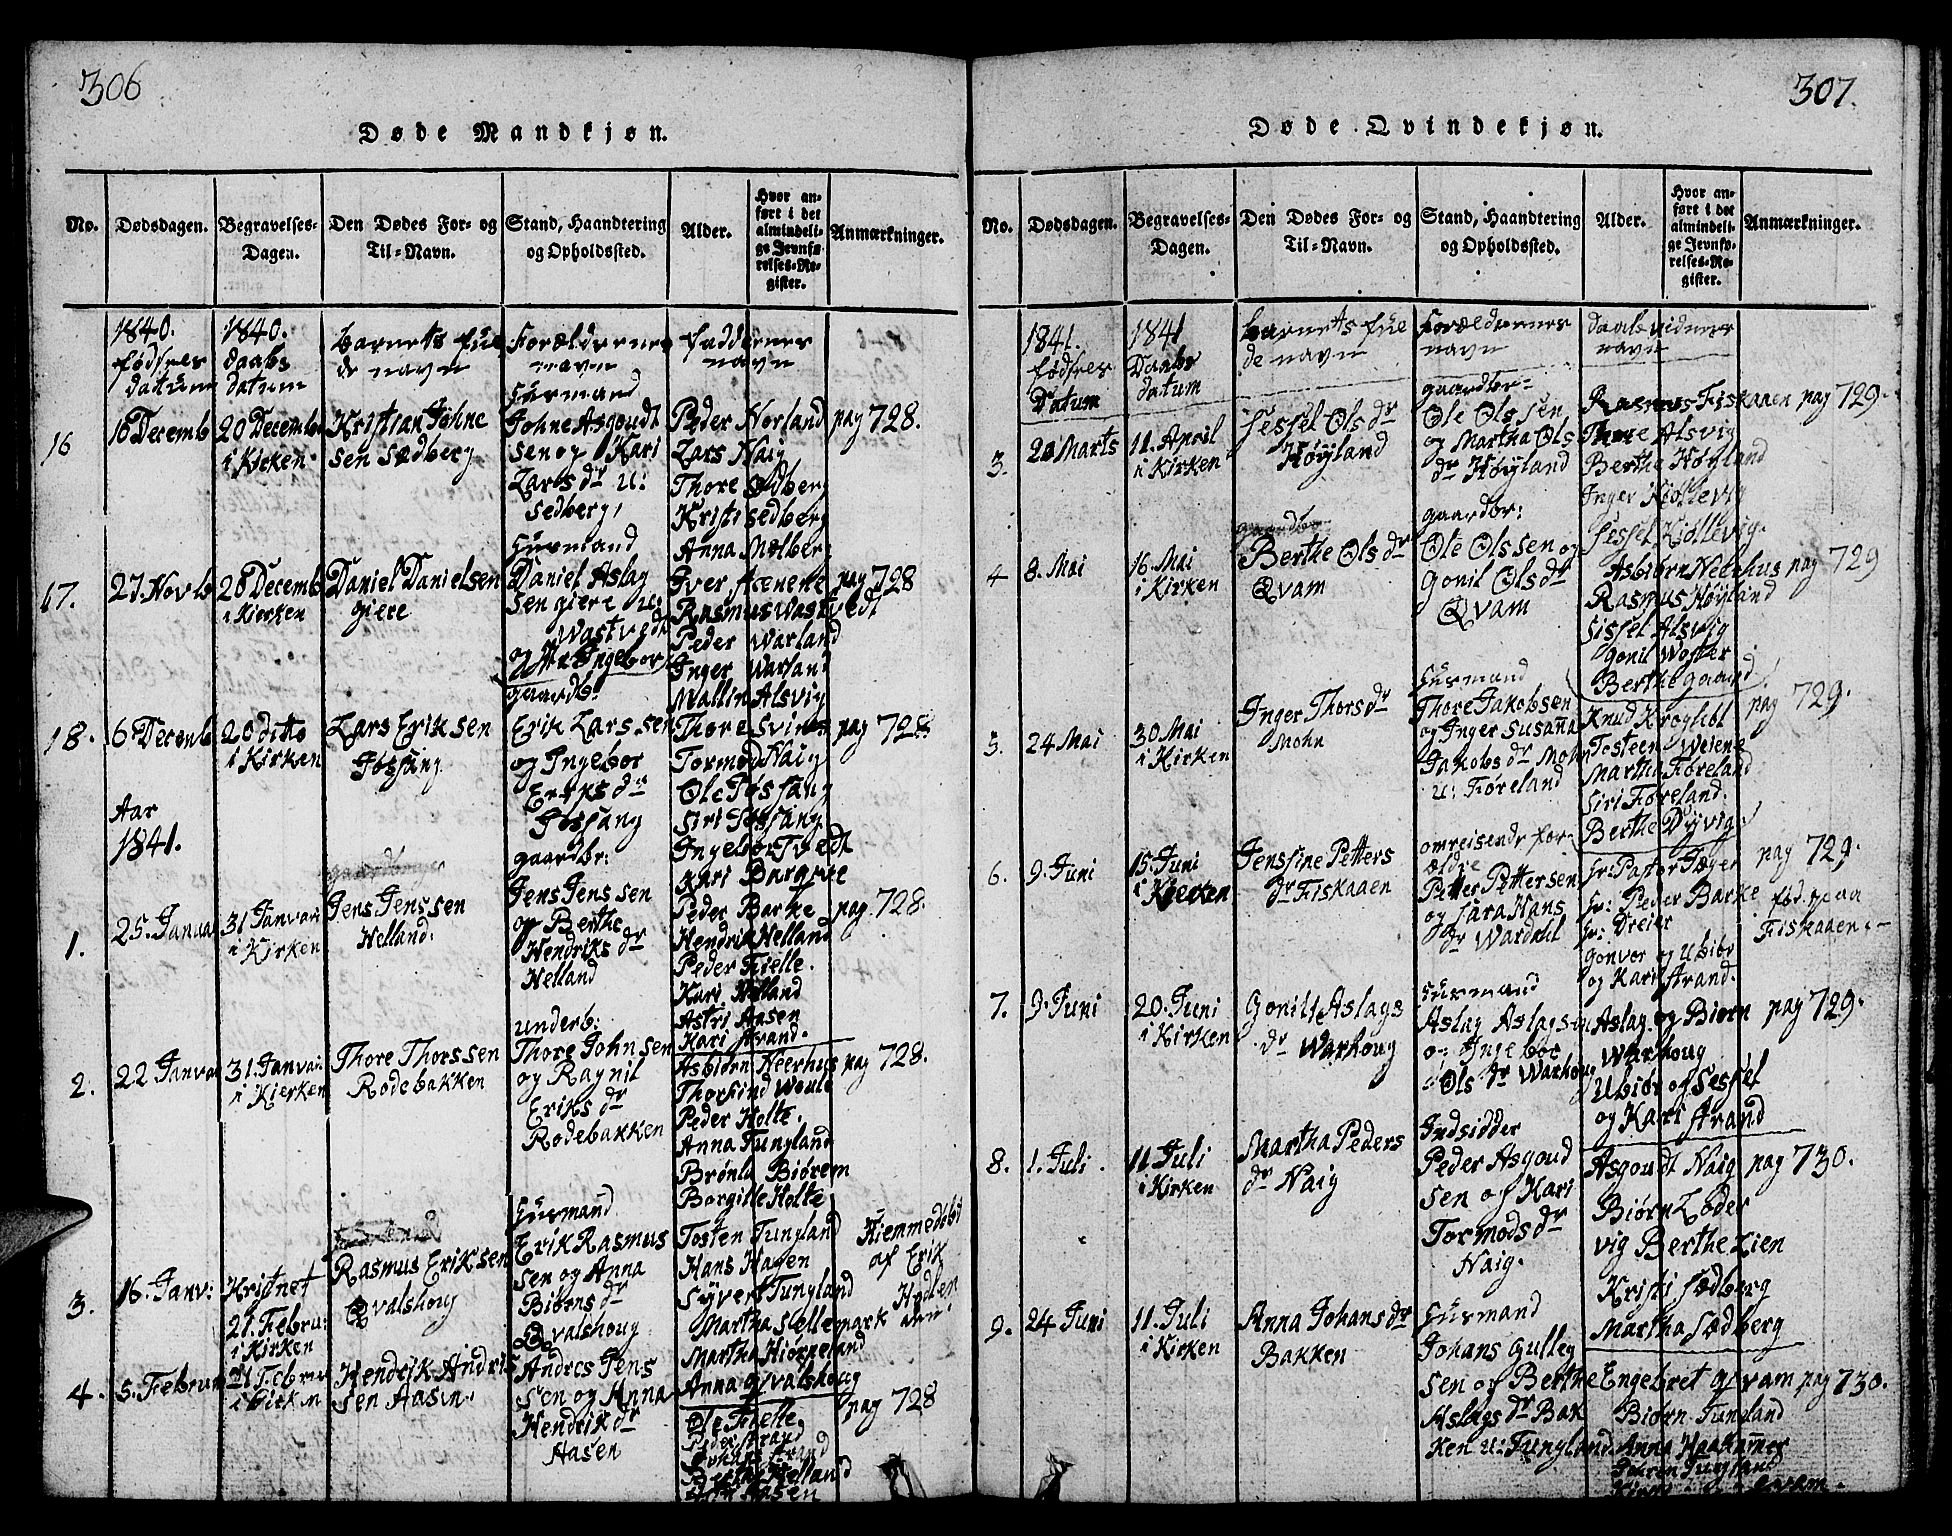 306
Døde Mandkjøn.
No.
Dødsdagen.
Begravelses-
Dagen.
Den Dødes For- og
Til-Navn.
Stand, Haandtering
og Opholdssted.
Alder.
Hvor an-
ført i det
almindeli-
ge Jevnfø-
relses-Re-
gister.
Anmærkninger.
1840.
fødsels
datum
1840.
daabs
datum
barnets ful
de navn
Forældrenes
navn
faddernes
navn
16
18 Decemb
20 Decemb
i Kirken
Kristian Johne
sen Sædberg
Husmand
Johne Asgoudt
sen og Kari
Lars dr u:
Sedberg,
Peder Norland
Lars Naig
Thore Sædberg
Kristi Sedberg
Anna Mælberg
pag 728.
17.
27 Novb
28 Decemb
i Kirken
Daniel Danielsen
giere
Husmand
Daniel Aslag
sen giere u:
Wastvedt
og Ingebor
Iver Aeneke
Rasmus Wastvedt
Peder Warland
Inger Warland
Mallin Alsvig
pag 728
18.
6 Decemb
20 ditto
i Kirken
Lars Eriksen
Føssang
gaardb:
Erik Larssen
og Ingebor
Eriks dr
Føssang
Thore Svines
Tormod Naig
Ole Føssang
Siri Føssang
Ingebor Tvedt
pag 728
Aar
1841.
1.
25. Januar
31 Januari
i Kirken
Jens Jenssen
Helland.
gaardbr:
Jens Jenssen
og Berthe
Hendriks dr
Helland
Kari Bargue
Peder Barke
Hendrik Helland
Peder Fielle.
Kari Helland
Astri Aasen
Kari Strand.
pag. 728.
2.
22 Janvar
31 Januari
i Kierken
Thore Thorssen
Rodebakken
underb:
Thore Johnsen
og Ragnil
Eriks dr
Rodebakken
Asbiørn Neerhus
Thorkind Woule
Peder Holte.
Anna Tungland
Brønla Biørem
Borgille Holte
pag 728.
3.
16. Janv:
Kristnet
21 Febru:
i Kirken
Rasmus Eriksen
Qvalshoug
Husmand
Erik Rasmus
sen og Anna
Biørns dr
Qvalshoug
Tosten Tungland
Hans Hagen
Syvert Tungland
Martha Selle
Martha Hiorteland
Anna Qvalshoug
Hiemmedøbt
af Erik
4.
5. Februar
21 Febru
i Kirken
Hendrik Andris
sen Aasen.
Andres Jens
sen og Anna
Hendrik dr
Aasen
Ole Fielle,
Peder Strand
Berthe Helland
pag 728
307.
Døde Qvindekjøn.
No.
Dødsdagen.
Begravelses-
Dagen.
Den Dødes For- og
Til-Navn.
Stand, Haandtering
og Opholdssted.
Alder.
Hvor an-
ført i det
almindeli-
ge Jevnfø-
relses-Re-
gister.
Anmærkninger.
1841.
fødsels
Datum
1841
Daabs
datum
barnets ful
de navn
Forældrenes
navn
daabsvidners
navn
3.
21 Marts
11. April
i Kirken
Sessel Ols dr
Høyland
gaardbr-
Ole Olssen
og Martha Ols
dr Høyland
Rasmus Fiskaaen
Thore Alsvig
Berthe Høyland
Inger Kiøllevig
Sessel Kiøllevig.
pag 729.
4
8. Mai
16. Mai
i Kirken
Berthe Ols dr
Qvam
gaardbr:
Ole Olssen og
Gonil Ols dr
Qvam
Asbiørn Neerhus
Rasmus Høyland
Sissel Alsvig
Gonil Woster
Berthe gaard
pag 729
5.
24 Mai
30. Mai
i Kirken
Inger Thors dr
Mohn
Husmand
Thore Jakobsen
og Inger Susanna
Jakobs dr Mohn
u: Føreland
Knud Krogliel
Tosteen Weiene
Martha Føreland
Siri Føreland.
Berthe Dyvig.
pag 729.
6.
9. Juni
15. Juni
i Kierken
Jenssine Petters
dr Fiskaaen
omreisende for
ældre
Petter Pettersen
og Sara Hans
dr Wardnul
hr: Pastor Jæger
hr: Peder Barke
hr: Dreier
Gonvor og Ubiør
og Kari Strand.
pag 729.
fød. paa
Fiskaaen.-
7.
9. Juni
20. Juni
i Kirken
Gonill Aslags
dr Warhoug
Husmand
Aslag Aslagsen
og Ingebor
Ols dr Warhoug
Aslag og Biørn
Warhoug
Ubiør of Sessel
og Kari Strand
pag 729.
8.
1. Juli.
11. Juli
i Kirken
Martha Peders
dr Naig
Indsidder
Peder Asgoud
sen of Kari
Tormods dr
Naig.
Asgoudt Naig
Biørn Løder
vig Berthe Lien
Kristi Sædberg
Martha Sædberg
pag 730.
9.
24 Juni
11. Juli
i Kirken
Anna Johans dr
Bakken
Husmand
Johans Gulley
sen of Berthe
Aslags dr Bak
ken u: Tungland.
Engebret Qvam
Biørn Tungland
Anna Haakamer
pag 730.